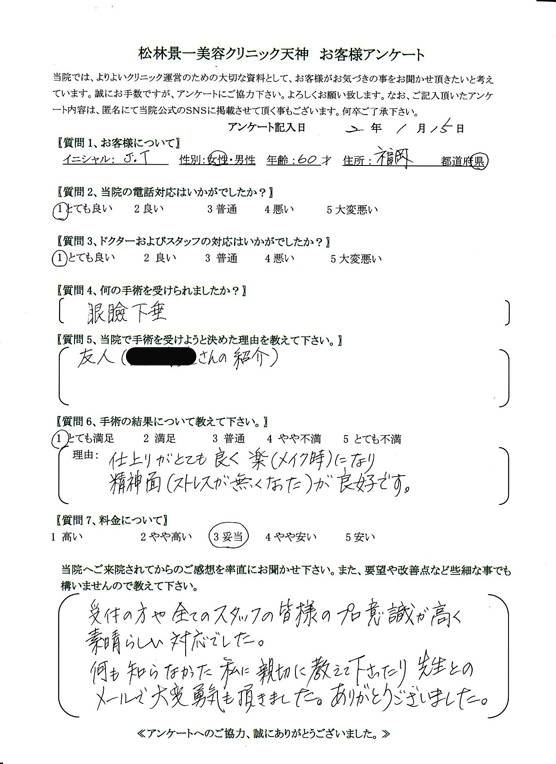 松林景一美容クリニック天神　お客様アンケート
当院では、よりよいクリニック運営のための大切な資料として、お客様がお気づきの事をお聞かせ頂きたいと考え
ています。誠にお手数ですが、アンケートにご協力下さい。よろしくお願い致します。なお、ご記入頂いたアンケ
ート内容は、匿名にて当院公式のSNSに掲載させて頂く事もございます。何卒ご了承下さい。
アンケート記入日　2 年 1 月 15 日
【質問 1、お客様について】
イニシャル: J.T　性別:女性・男性　年齢:60 才　住所: 福岡　都道府県
【質問 2、当院の電話対応はいかがでしたか？】
1 とても良い　2 良い　3 普通　4 悪い　5 大変悪い
【質問 3、ドクターおよびスタッフの対応はいかがでしたか？】
1 とても良い　2 良い　3 普通　4 悪い　5 大変悪い
【質問 4、何の手術を受けられましたか？】
眼瞼下垂
【質問 5、当院で手術を受けようと決めた理由を教えて下さい。】
友人(さんの紹介)
【質問 6、手術の結果について教えて下さい。】
1 とても満足　2 満足　3 普通　4 やや不満　5 とても不満
理由: 仕上りがとても良く楽(メイク時)になり
精神面(ストレスが無くなった)が良好です。
【質問 7、料金について】
1 高い　2 やや高い　3 妥当　4 やや安い　5 安い
当院へご来院されてからのご感想を率直にお聞かせ下さい。また、要望や改善点など些細な事でも
構いませんので教えて下さい。
受付の方や全てのスタッフの皆様のプロ意識が高く
素晴らしい対応でした。
何も知らなかった私に親切に教えて下さったり先生との
メールで大変勇気も頂きました。ありがとうございました。
≪アンケートへのご協力、誠にありがとうございました。≫